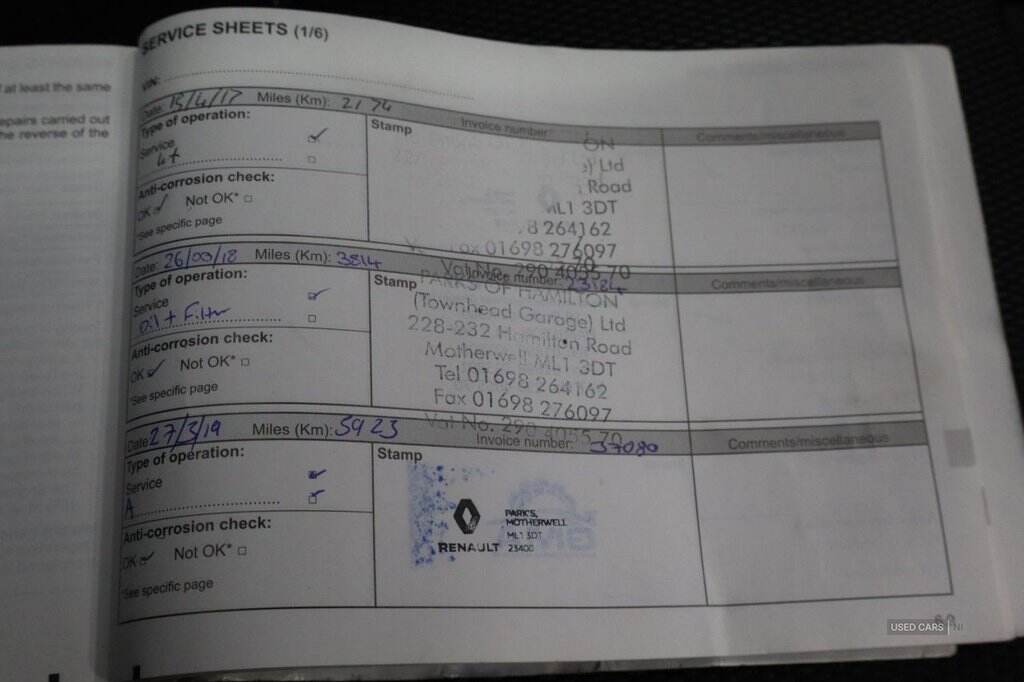 f at least the same
epairs carried out
he reverse of the
SERVICE SHEETS (1/6)
VIN:
Date: 13/4/17 Miles (Km): 2174
Type of operation:
Service
Anti-corrosion check:
OK ✓ Not OK* □
*See specific page
Stamp
Invoice number:
Comments/miscellaneous
ON
) Ltd
Road
ML1 3DT
8 264162
Fax 01698 276097
Vat No. 290 4055 70
Date: 26/03/18 Miles (Km): 3814
Type of operation:
Service
Oil + Filter
Anti-corrosion check:
OK ✓ Not OK* □
*See specific page
Stamp
Invoice number: 23184
Comments/miscellaneous
PARKS OF HAMILTON
(Townhead Garage) Ltd
228-232 Hamilton Road
Motherwell ML1 3DT
Tel 01698 264162
Fax 01698 276097
Vat No. 290 4055 70
Date 27/3/19 Miles (Km): 5923
Type of operation:
Service
A
Anti-corrosion check:
OK ✓ Not OK* □
*See specific page
Stamp
Invoice number: 37080
Comments/miscellaneous
RENAULT
PARK'S,
MOTHERWELL
ML1 3DT
23400
USED CARS NI